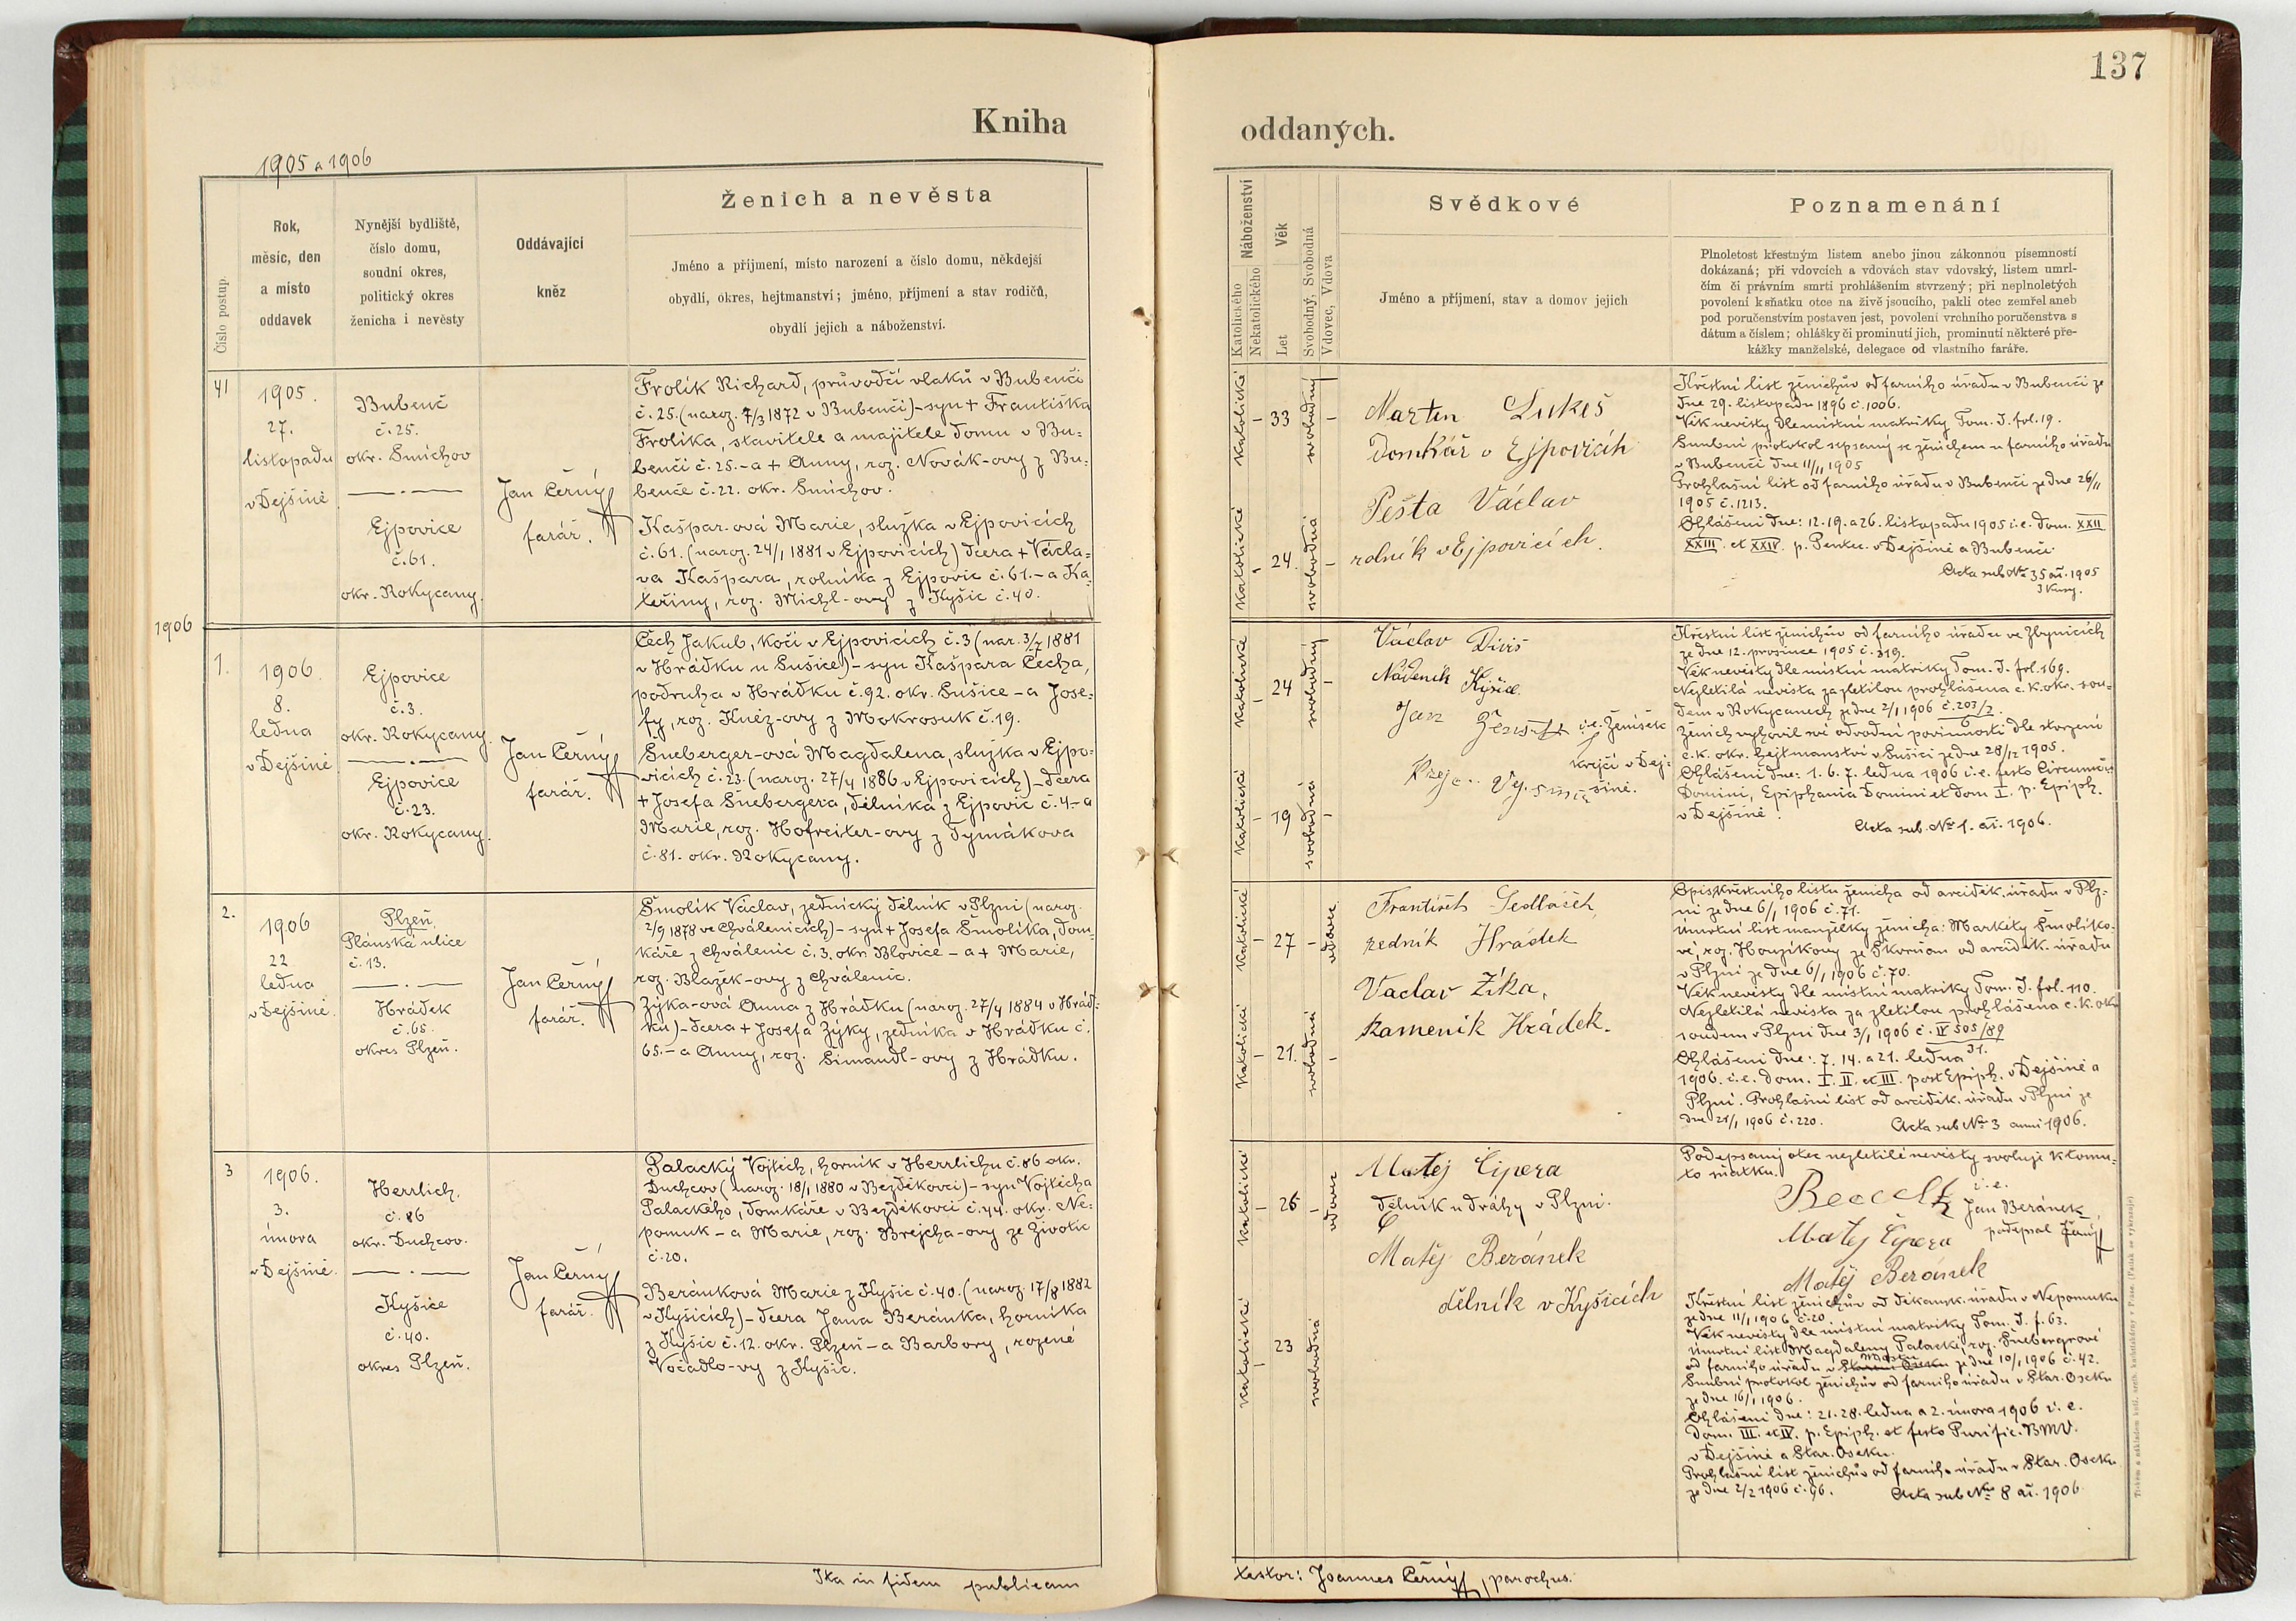 137
Kniha
oddaných.
1905 a 1906
Číslo postup.
Rok,
měsíc, den
a místo
oddavek
Nynější bydliště,
číslo domu,
soudní okres,
politický okres
ženicha i nevěsty
Oddávající
kněz
Ženich a nevěsta
Jméno a příjmení, místo narození a číslo domu, někdejší
obydlí, okres, hejtmanství; jméno, příjmení a stav rodičů,
obydlí jejich a náboženství.
Náboženství
Katolického
Nekatolického
Věk
Let
Svobodný, Svobodná
Vdovec, Vdova
Svědkové
Jméno a příjmení, stav a domov jejich
Poznamenání
Plnoletost křestným listem anebo jinou zákonnou písemností
dokázaná; při vdovcích a vdovách stav vdovský, listem umrl-
čím či právním smrti prohlášením stvrzený; při neplnoletých
povolení k sňatku otce na živě jsoucího, pakli otec zemřel aneb
pod poručenstvím postaven jest, povolení vrchního poručenstva s
dátum a číslem; ohlášky či prominutí jich, prominutí některé pře-
kážky manželské, delegace od vlastního faráře.
41
1905.
27.
listopadu
v Dejšině
Bubenč
č. 25.
okr. Smíchov
Ejpovice
č. 61.
okr. Rokycany.
Jan Černý
farář.
Frolík Richard, průvodčí vlaků v Bubenči
č. 25. (naroz. 7/3 1872 v Bubenči) - syn + Františka
Frolíka, stavitele a majitele domu v Bu=
benči č. 25. - a + Anny, roz. Novák-ovy z Bu=
benče č. 22. okr. Smíchov.
Kašpar-ová Marie, služka v Ejpovicích
č. 61. (naroz. 24/1 1881 v Ejpovicích) dcera + Václa=
va Kašpara, rolníka z Ejpovic č. 61. - a Ka=
teřiny, roz. Michl-ovy z Kyšic č. 40.
katolické
- 33
svobodný
-
katolické
- 24.
svobodná
-
Martin Lukeš
Domkář v Ejpovicích
Pešta Václav
rolník v Ejpovicích.
Křestní list ženichův od farního úřadu v Bubenči ze
dne 29. listopadu 1896 č. 1006.
Věk nevěsty dle místní matriky Tom. I. fol. 19.
Snubní protokol sepsaný se ženichem u farního úřadu
v Bubenči dne 11/11 1905
Prohlašní list od farního úřadu v Bubenči ze dne 26/11
1905 č. 1213.
Ohlášení dne: 12. 19. a 26. listopadu 1905 i. e. dom. XXII
XXIII. et XXIV. p. Pentec. v Dejšině a Bubenči.
Acta sub No 35 ai. 1905
1906
1.
1906.
8.
ledna
v Dejšině
Ejpovice
č. 3.
okr. Rokycany.
Ejpovice
č. 23.
okr. Rokycany.
Jan Černý
farář.
Čech Jakub, kočí v Ejpovicích č. 3 (nar. 3/7 1881
v Hrádku u Sušice) - syn Kašpara Čecha,
podruha v Hrádku č. 92. okr. Sušice - a Jose=
fy, roz. Kněz-ovy z Mokrosuk č. 19.
Šneberger-ová Magdalena, služka v Ejpo-
vicích č. 23. (naroz. 27/4 1886 v Ejpovicích) - dcera
+ Josefa Šnebergera, dělníka z Ejpovic č. 4. - a
Marie, roz. Hofreiter-ovy z Tymákova
č. 81. okr. Rokycany.
katolické
- 24
svobodný
-
katolické
- 19
svobodná
-
Václav Diviš
Nádeník Kyšice.
Jan
i. e. Ženíšek
krejčí v Dej=
šině.
Křestní list ženichův od farního úřadu ve Zbynicích
ze dne 12. prosince 1905 č. 319.
Věk nevěsty dle místní matriky Tom. I. fol. 169.
Nezletilá nevěsta za zletilou prohlášena c. k. okr. sou=
dem v Rokycanech ze dne 2/1 1906 č. 203/2
6
Ženich vyhovil své odvodní povinnosti dle stvrzení
c. k. okr. hejtmanství v Sušici ze dne 28/12 1905.
Ohlášení dne: 1. 6. 7. ledna 1906 i. e. festo Circumcis.
Domini, Epiphania Domini et dom I. p. Epiph.
v Dejšině.
Acta sub No 1. ai. 1906.
2.
1906
22
ledna
v Dejšině.
Plzeň,
Plánská ulice
č. 13.
Hrádek
č. 65.
okres Plzeň.
Jan Černý
farář.
Smolík Václav, zednický dělník v Plzni (naroz.
2/9 1878 ve Chválenicích) - syn + Josefa Smolíka, dom=
káře z Chválenic č. 3. okr. Blovice - a + Marie,
roz. Blažek-ovy z Chválenic.
Zýka-ová Anna z Hrádku (naroz. 27/4 1884 v Hrád=
ku) - dcera + Josefa Zýky, zedníka v Hrádku č.
65. - a Anny, roz. Šimandl-ovy z Hrádku.
katolické
- 27 -
vdovec
katolické
- 21.
svobodná
-
František Sedláček,
zedník Hrádek
Vaclav Zíka,
kameník Hrádek.
Opis křestního listu ženicha od arciděk. úřadu v Plz=
ni ze dne 6/1 1906 č. 71.
Úmrtní list manželky ženicha: Markéty Smolíko-
vé, roz. Houzíkovy ze Skvrňan od arciděk. úřadu
v Plzni ze dne 6/1 1906 č. 70.
Věk nevěsty dle místní matriky Tom. I. fol. 110.
Nezletilá nevěsta za zletilou prohlášena c. k. okr.
soudem v Plzni dne 3/1 1906 č. IV 505/89
31.
Ohlášení dne: 7. 14. a 21. ledna
1906. i. e. dom. I. II. et III. post Epiph. v Dejšině a
Plzni. Prohlašní list od arciděk. úřadu v Plzni ze
dne 21/1 1906 č. 220.
Acta sub No 3 anni 1906.
3
1906.
3.
února
v Dejšině.
Herrlich.
č. 86
okr. Duchcov.
Kyšice
č. 40.
okres Plzeň.
Jan Černý
farář.
Palacký Vojtěch, horník v Herrlichu č. 86 okr.
Duchcov (naroz. 18/1 1880 v Bezděkovci) - syn Vojtěcha
Palackého, domkáře v Bezděkovci č. 44. okr. Ne=
pomuk - a Marie, roz. Brejcha-ovy ze Životic
č. 20.
Beránková Marie z Kyšic č. 40. (naroz. 17/8 1882
v Kyšicích) - dcera Jana Beránka, horníka
z Kyšic č. 12. okr. Plzeň - a Barbory, rozené
Vočadlo-vy z Kyšic.
katolické
- 26 -
vdovec
katolické
- 23
svobodná
Matěj Cipera
dělník u dráhy v Plzni.
Matěj Beránek
dělník v Kyšicích
Podepsaný otec nezletilé nevěsty svoluje k tomu=
to sňatku.
i. e.
Jan Beránek,
podepsal Černý
Matěj Cipera
Matěj Beránek
Křestní list ženichův od děkansk. úřadu v Nepomuku
ze dne 11/1 1906 č. 20.
Věk nevěsty dle místní matriky Tom. I. f. 63.
Úmrtní list Magdaleny Palacké, roz. Snebergrové
od farního úřadu v Starém Oseku ze dne 10/1 1906 č. 42.
Snubní protokol ženichův od farního úřadu v Star. Oseku
ze dne 16/1 1906.
Ohlášení dne: 21. 28. ledna a 2. února 1906 i. e.
dom. III. et IV. p. Epiph. et festo Purific. BMV.
v Dejšině a Star. Oseku.
Prohlašní list ženichův od farního úřadu v Star. Oseku
ze dne 2/2 1906 č. 96.
Acta sub No 8 ai. 1906
Ita in fidem publicam
testor: Joannes Černý, parochus.